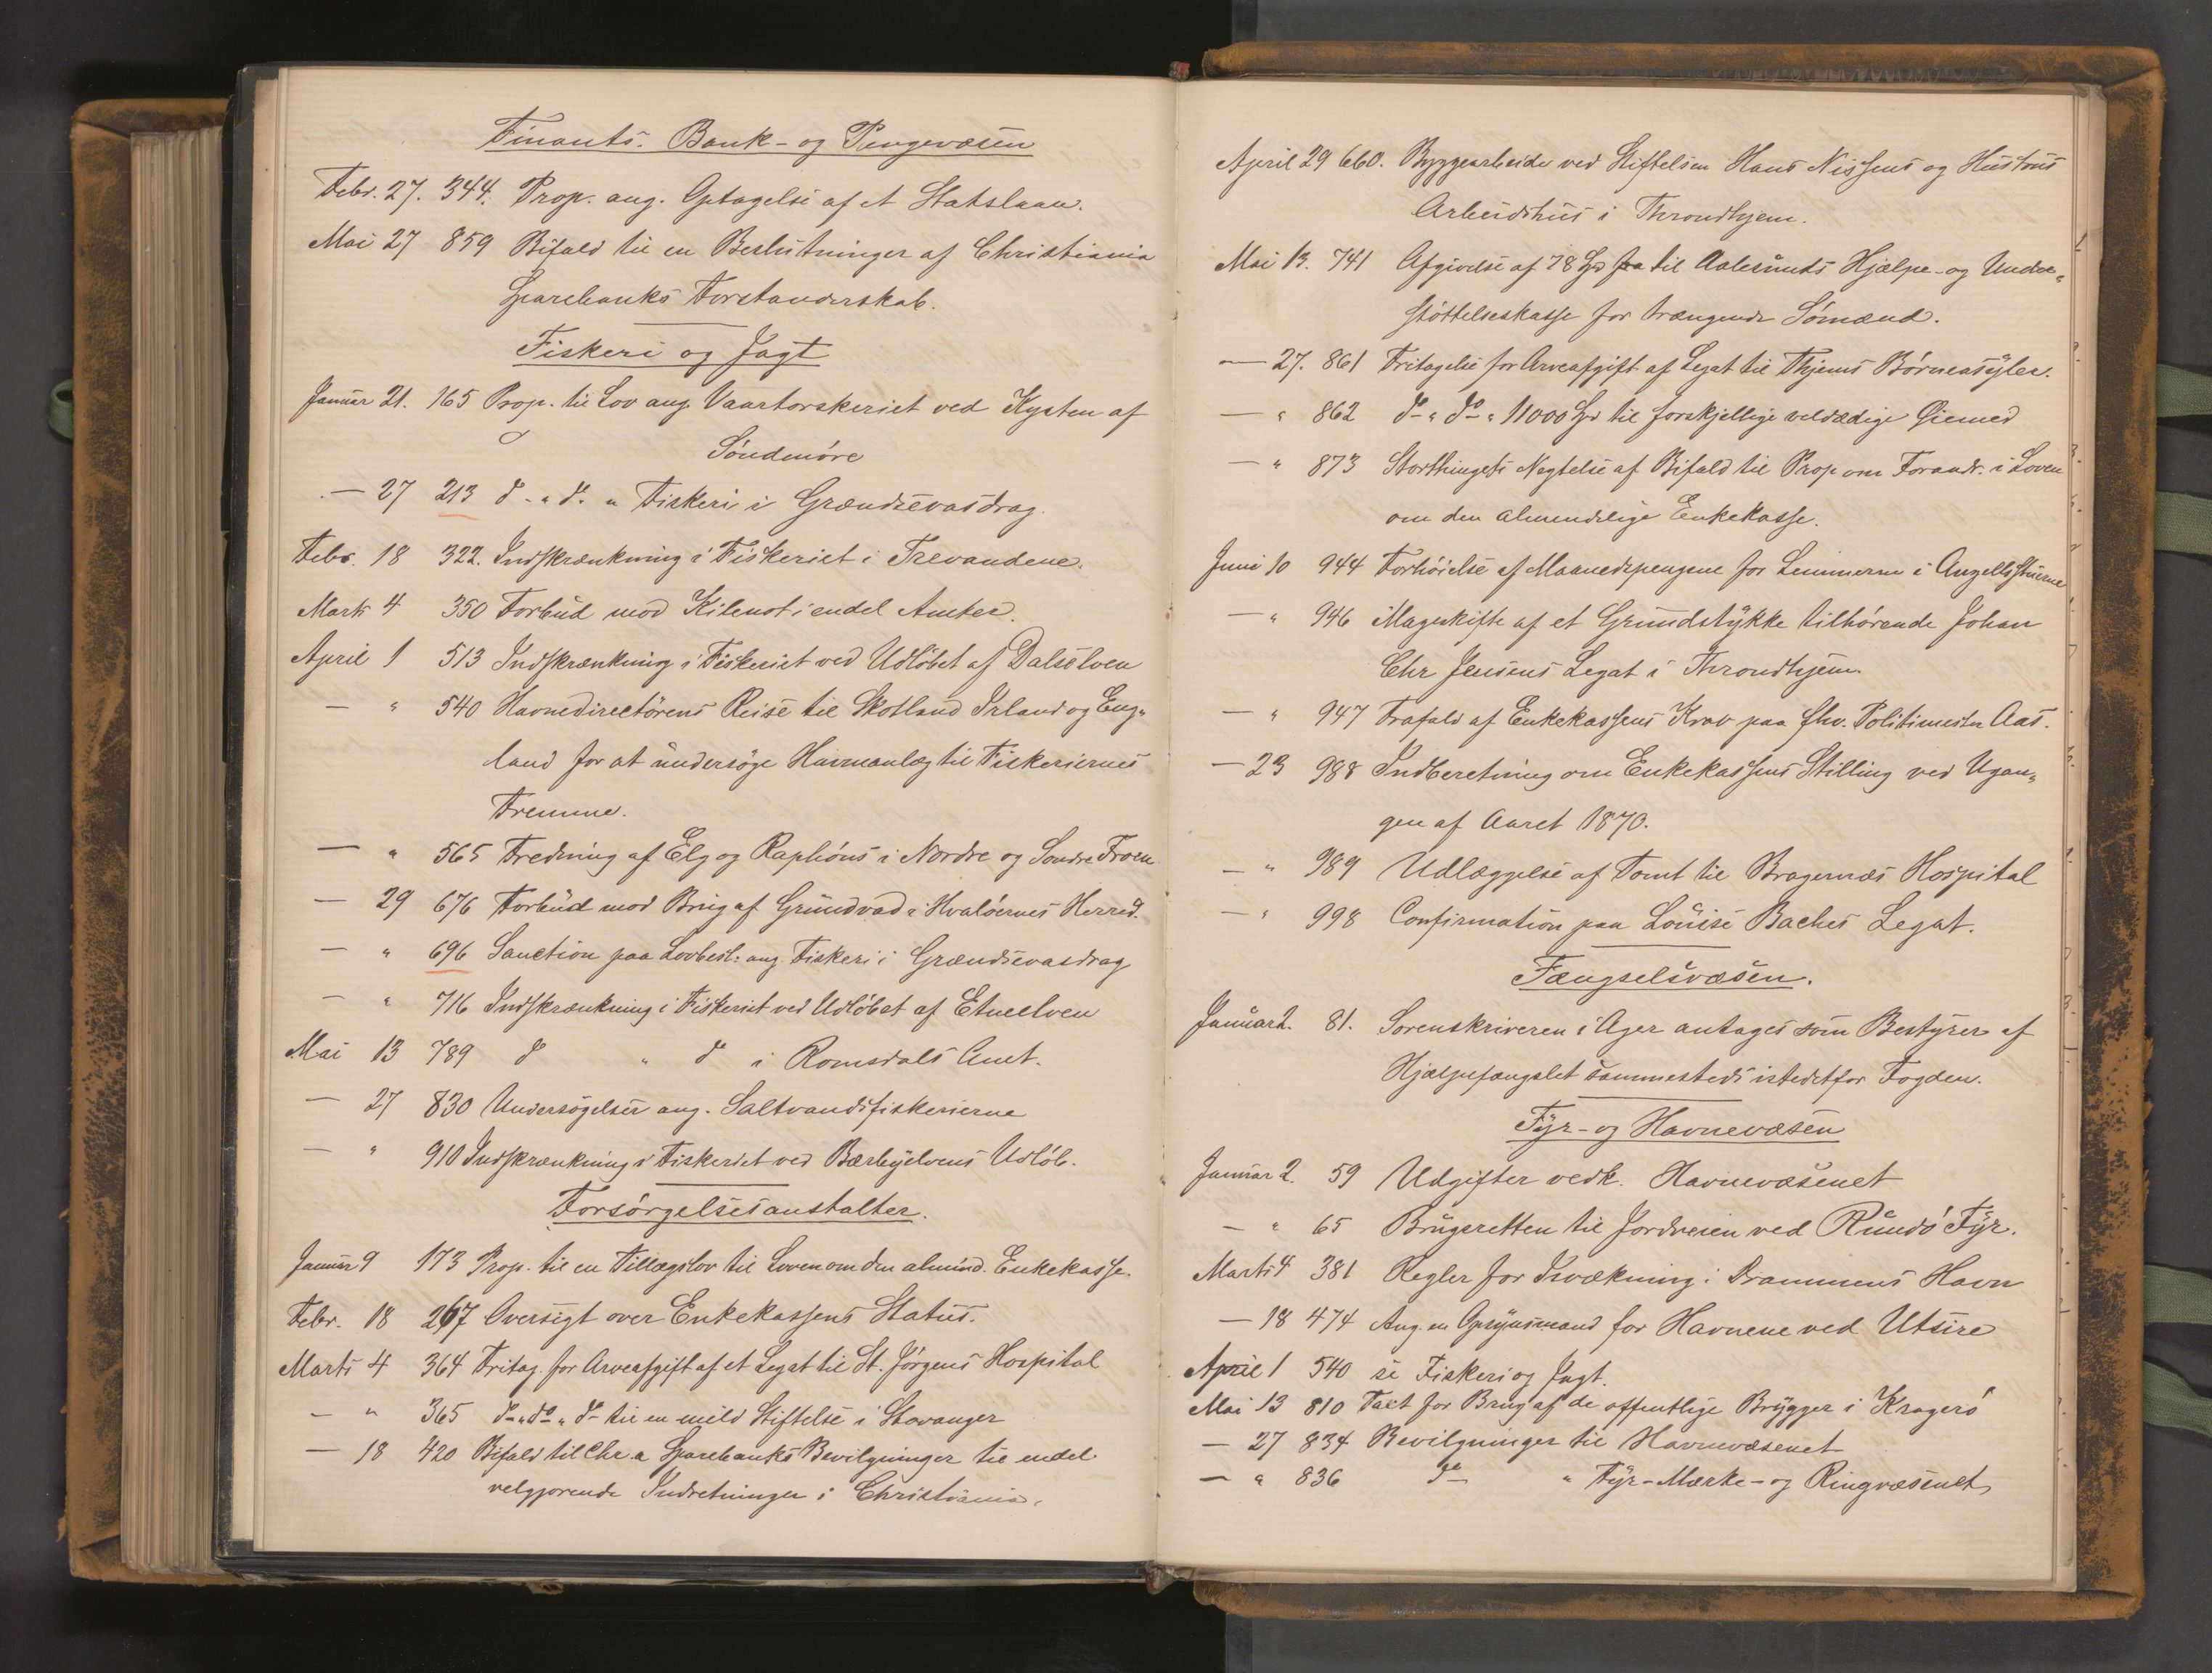 Finants- Bank- og Pengevæsen
Febr. 27. 344. Prop. ang. Optagelse af et Statslaan.
Mai 27 859 Bifald til en Beslutninger af Christiania
Sparebanks Forstanderskab.
Fiskeri og Jagt
Januar 21. 165 Prop. til Lov ang. Vaartorskeriet ved Kysten af
Söndmöre
— 27 213 do " do " Fiskeri i Grændsevasdrag.
Febr. 18 322. Indskrænkning i Fiskeriet i Trevandene.
Marts 4 350 Forbud mod Kilenot i endel Amter.
April 1 513 Indskrænkning i Fiskeriet ved Udlöbet af Dalselven
— " 540 Havnedirectörens Reise til Skotland Irland og Eng-
land for at undersöge Havneanlæg til Fiskeriernes
Fremme.
— " 565 Fredning af Elg og Raphöns i Nordre og Sondre Froen
— 29 676 Forbud mod Brug af Grundvad i Hvalöernes Herred.
— " 696 Sanction paa Lovbesl: ang. Fiskeri i Grændsevasdrag
— " 716 Indskrænkning i Fiskeriet ved Udlöbet af Etneelven
Mai 13 789 do " do i Romsdals Amt.
— 27 830 Undersögelser ang. Saltvandsfiskerierne
— " 910 Indskrænkning i Fiskeriet ved Bærbyelvens Udlöb.
Forsörgelsesanstalter.
Januar 9 173 Prop. til en Tillægslov til Loven om den almind. Enkekasse.
Febr. 18 267 Oversigt over Enkekassens Status.
Marts 4 364 Fritag. for Arveafgift af et Legat til St. Jörgens Hospital
— " 365 do " do " do til en mild Stiftelse i Stavanger
— 18 420 Bifald til Chr.a Sparebanks Bevilgninger til endel
velgjorende Indretninger i Christiania.
April 29 660. Byggearbeide ved Stiftelsen Hans Nissens og Hustrus
Arbeidshus i Throndhjem.
Mai 13. 741 Afgivelse af 78 Spd fra til Aalesunds Hjælpe- og Under-
stöttelseskasse for trængende Sömænd.
— 27. 861 Fritagelse for Arveafgift af Legat til Thjems Börneasyler.
— " 862 do " do " 11000 Spd til forskjellige veldædige Öiemed
— " 873 Storthingets Negtelse af Bifald til Prop om Forandr. i Loven
om den almindelige Enkekasse.
Juni 10 944 Forhöielse af Maanedspengene for Lemmerne i Angellsstuerne
— " 946 Mageskifte af et Grundstykke tilhörende Johan
Chr Jensens Legat i Throndhjem.
— " 947 Frafald af Enkekassens Krav paa fhv. Politimester Aas.
— 23 988 Indberetning om Enkekassens Stilling ved Ugan-
gen af Aaret 1870.
— " 989 Udlæggelse af Tomt til Bragernæs Hospital
— " 998 Confirmation paa Louise Baches Legat.
Fængselsvæsen.
Januar 2. 81. Sorenskriveren i Ager antages som Bestyrer af
Hjælpefængslet sammesteds istedetfor Fogden.
Fyr- og Havnevæsen
Januar 2. 59 Udgifter vedk. Havnevæsenet
— " 65 Brugsretten til Jordveien ved Rundö Fyr.
Marts 4 381 Regler for Isvækning i Drammens Havn
— 18 474 Ang. en Opsynsmand for Havnene ved Utsire
April 1 540 se Fiskeri og Jagt.
Mai 13 810 Taxt for Brug af de offentlige Brygger i Kragerö
— 27 834 Bevilgninger til Havnevæsenet
— " 836 do " Fyr- Mærke- og Ringvæsenet